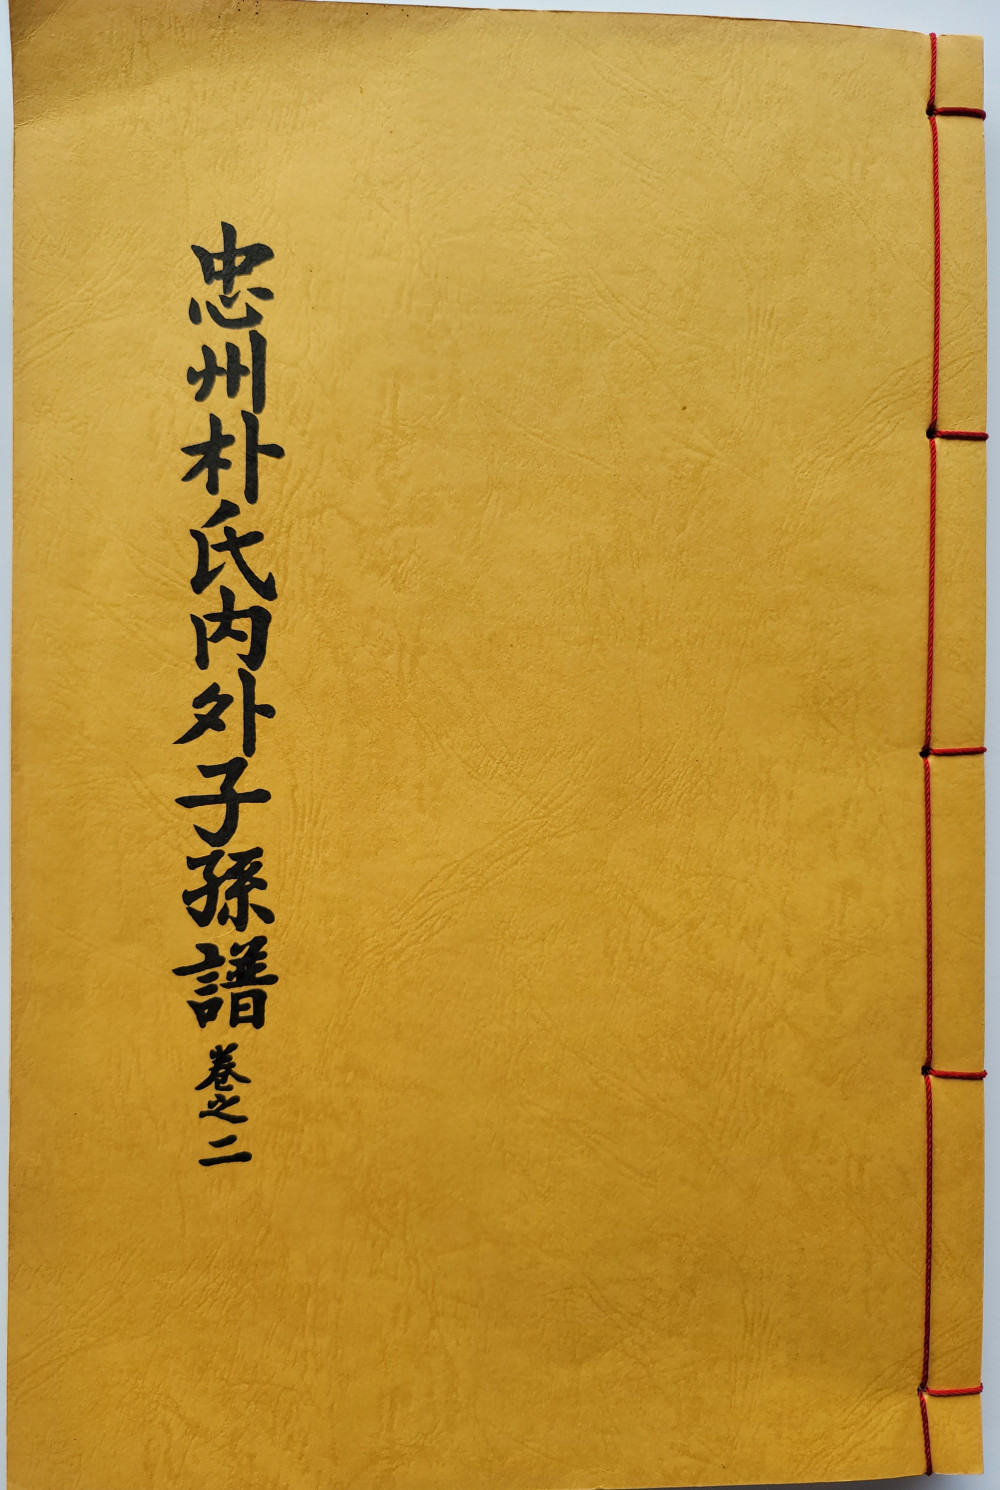 忠州朴氏內外子孫譜 卷之二